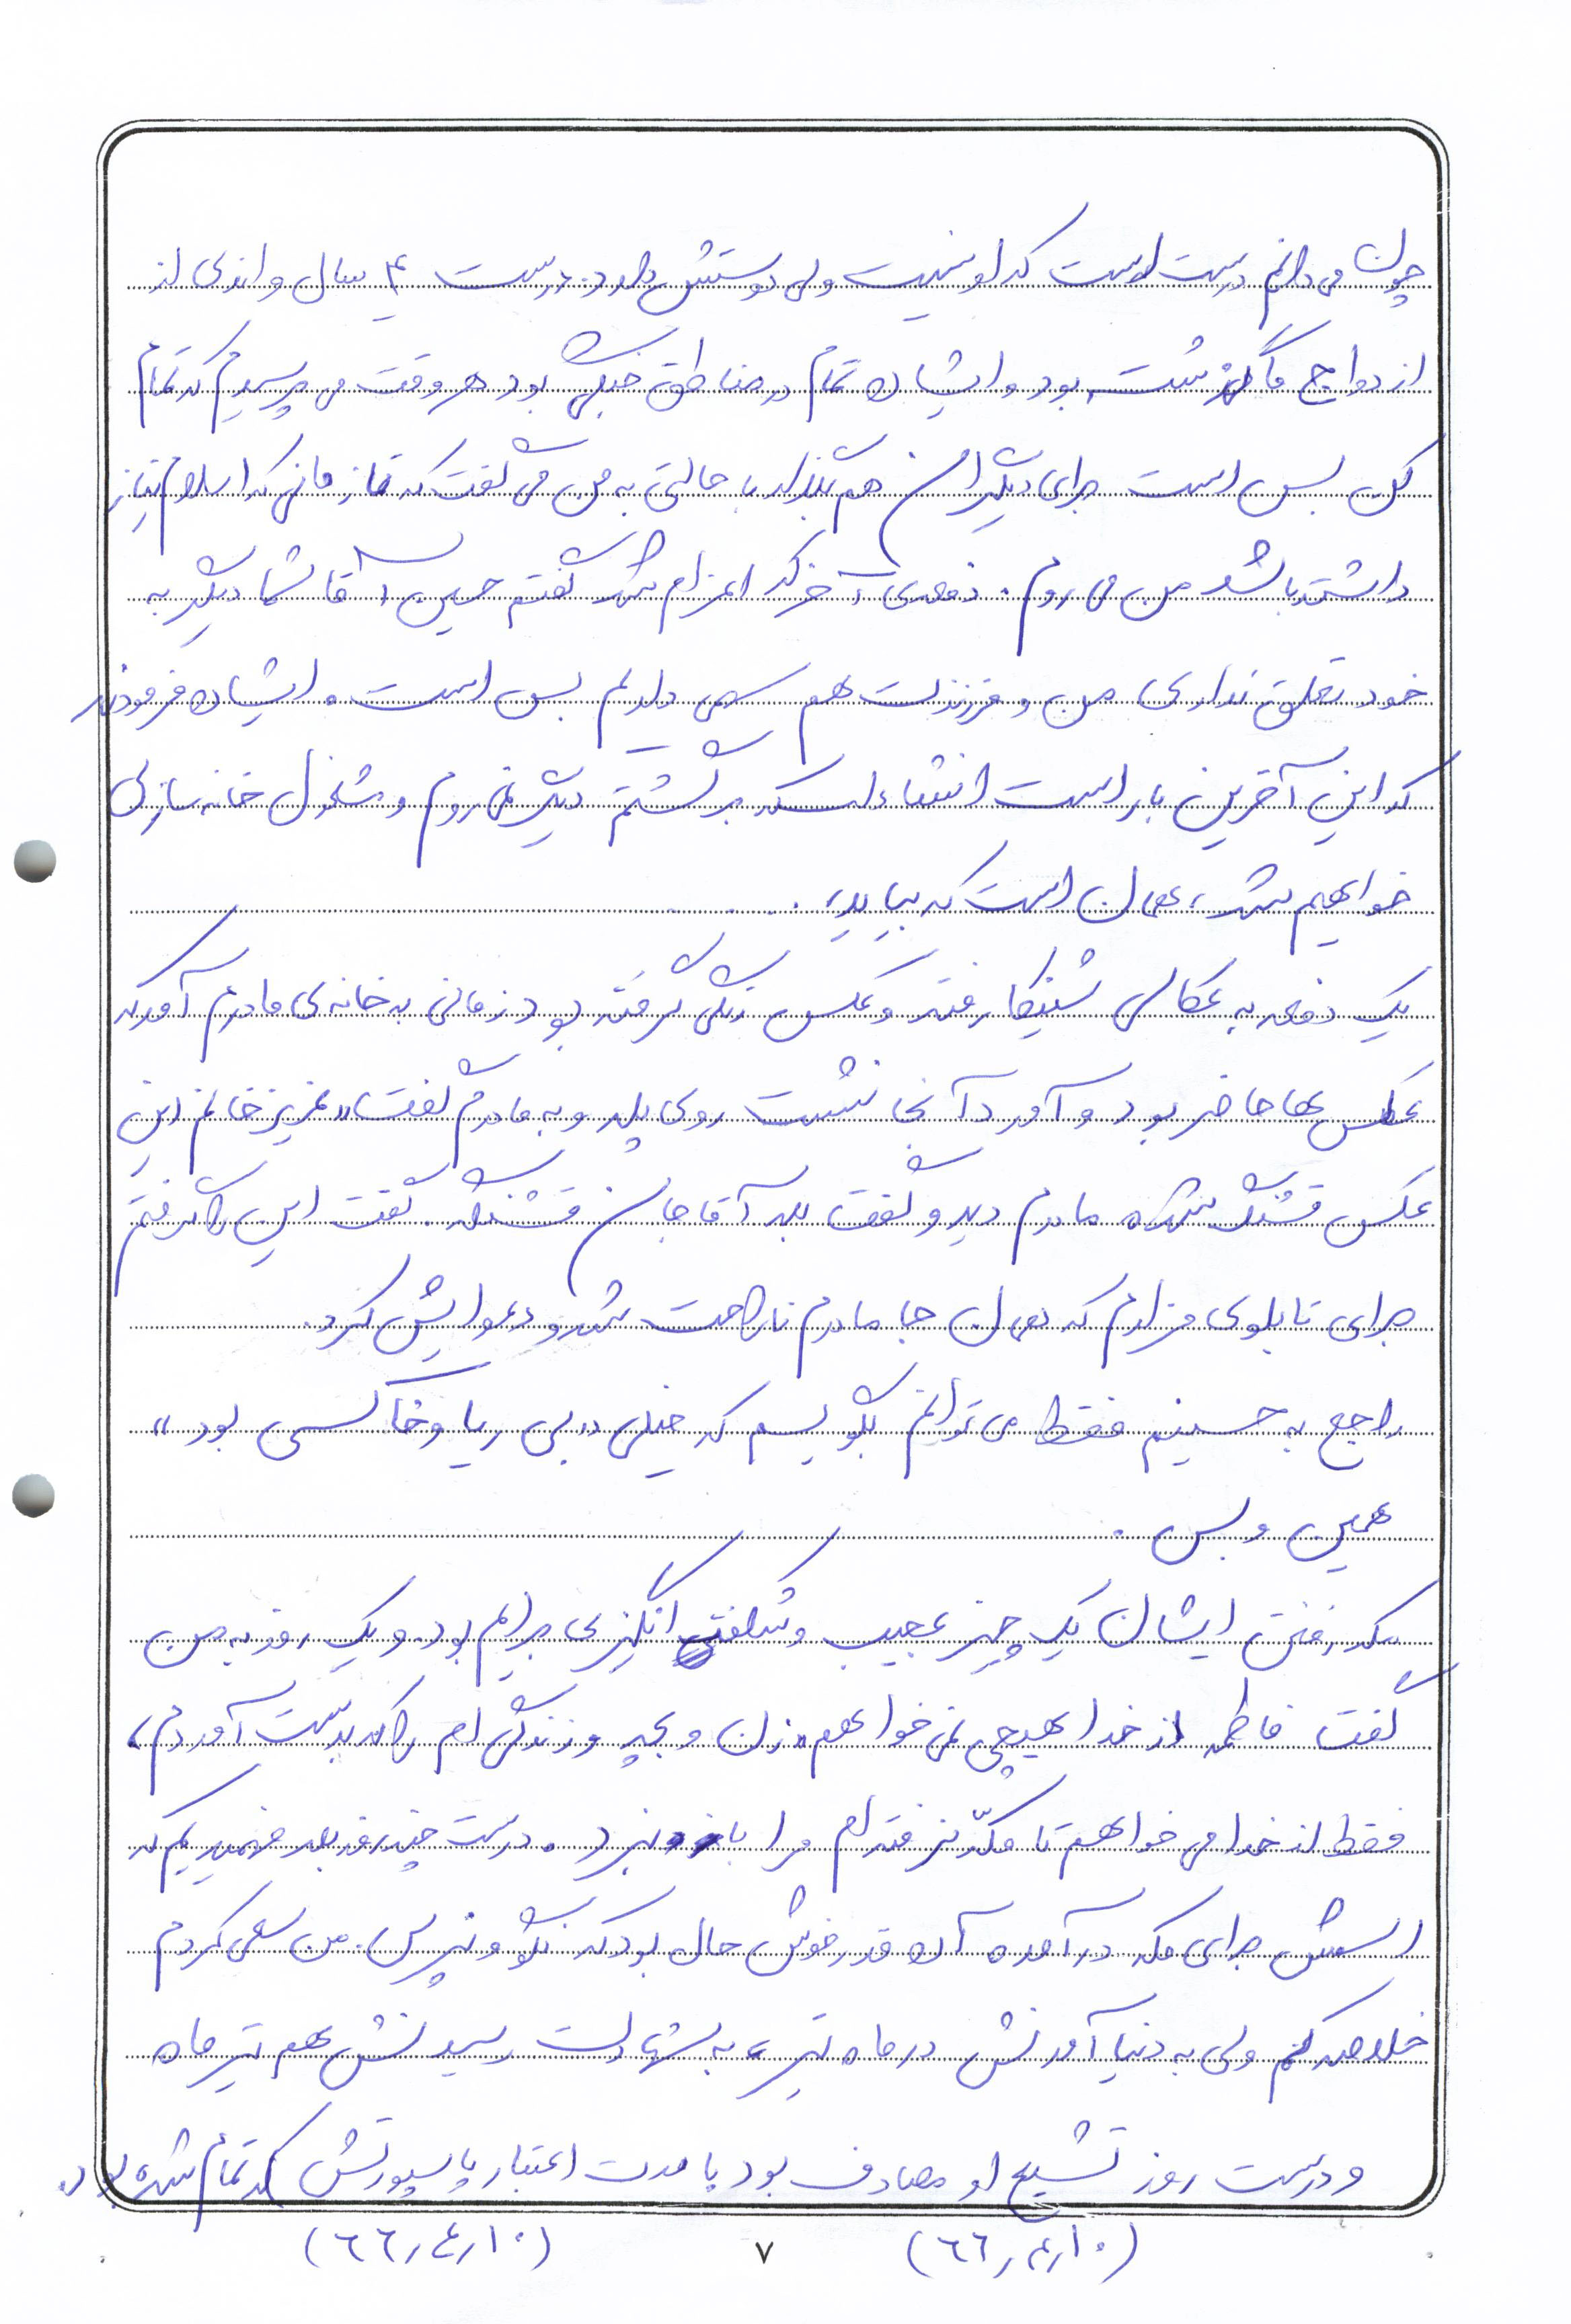 چون می دانم درست است که او نیست ولی دوستش دارد. درست ۴ سال و اندی از
ازدواج ما گذشت بود و ایشان تمام در مناطق جنگی بود هر وقت می پرسیدم که تمام
کن بس است برای دیگران هم بگذار با حالتی به من می گفت که تا زمانی که اسلام نیاز
داشته باشد من می روم. دفعه ی آخر که اعزام شد گفتم حسین آقا شما دیگر به
خود تعلق نداری من و فرزندت هم سهمی داریم بس است. ایشان فرمودند
که این آخرین بار است انشاءالله که برگشتم دیگر نمی روم و مشغول خانه سازی
خواهیم شد، همان است که بیاید، . . . .
یک دفعه به عکاسی رفته و عکس رنگی گرفته بود زمانی به خانه ی مادرم آمد که
عکس ها حاضر بود و آورد آنجا نشست روی پله و به مادرم گفت «عزیز خانم این
عکس قشنگ شده مادرم دید و گفت بله آقا جان قشنگه. گفت این را گرفتم
برای تابلوی مزارم که همان جا مادرم ناراحت شد و دعوایش کرد.
راجع به حسینم فقط می توانم بگویم که خیلی «بی ریا و خاکسی بود»
همین و بس .
مکه رفتن ایشان یک چیز عجیب و شگفت انگیزی برایم بود. و یک روز به من
گفت فاطمه از خدا هیچی نمی خواهم، زن و بچه و زندگی ام را که بدست آوردم،
فقط از خدا می خواهم تا مکّه نرفته ام مرا با خود نبرد. درست چند روز بعد فهمیدیم که
اسمش برای مکه در آمده آن قدر خوش حال بود که نگو و نپرس. من سعی کردم
خلاصه کنم ولی به دنیا آمدنش در ماه تیر، به شهادت رسیدنش هم تیر ماه
و درست روز تشییع او مصادف بود با مدت اعتبار پاسپورتش که تمام شده بود.
(۱۰ر۴ر۶۶) ۷ (۱۰ر۴ر۶۶)